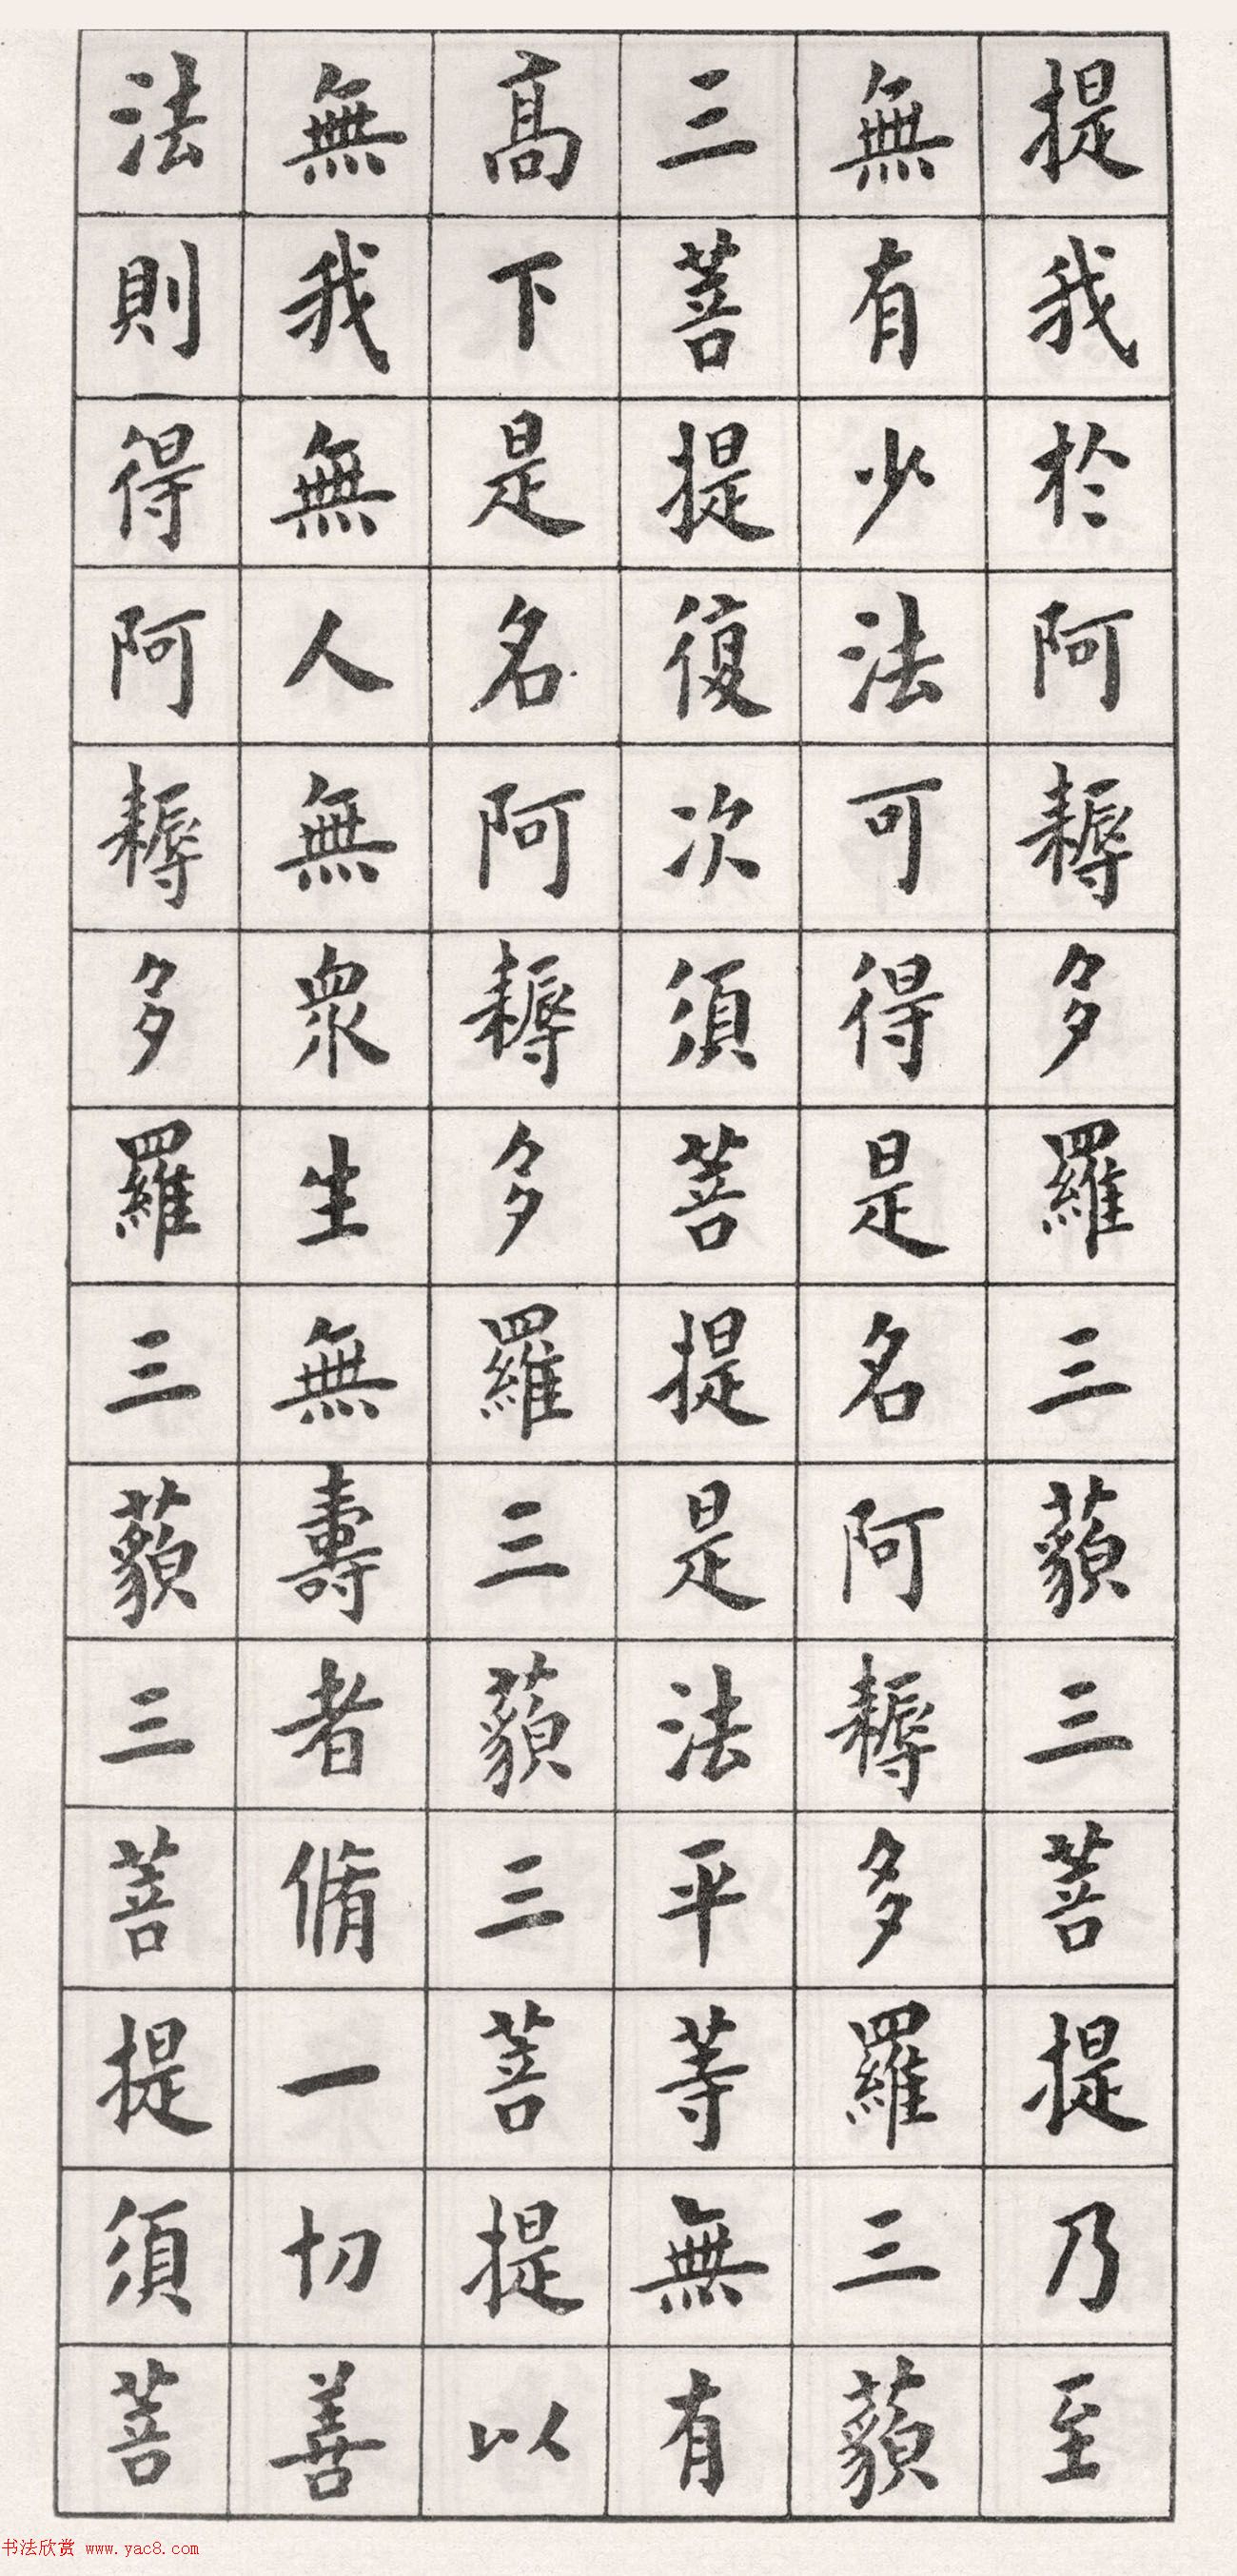 提我於阿耨多羅三藐三菩提乃至
無有少法可得是名阿耨多羅三藐
三菩提復次須菩提是法平等無有
高下是名阿耨多羅三藐三菩提以
無我無人無眾生無壽者脩一切善
法則得阿耨多羅三藐三菩提須菩
书法欣赏 www.yac8.com